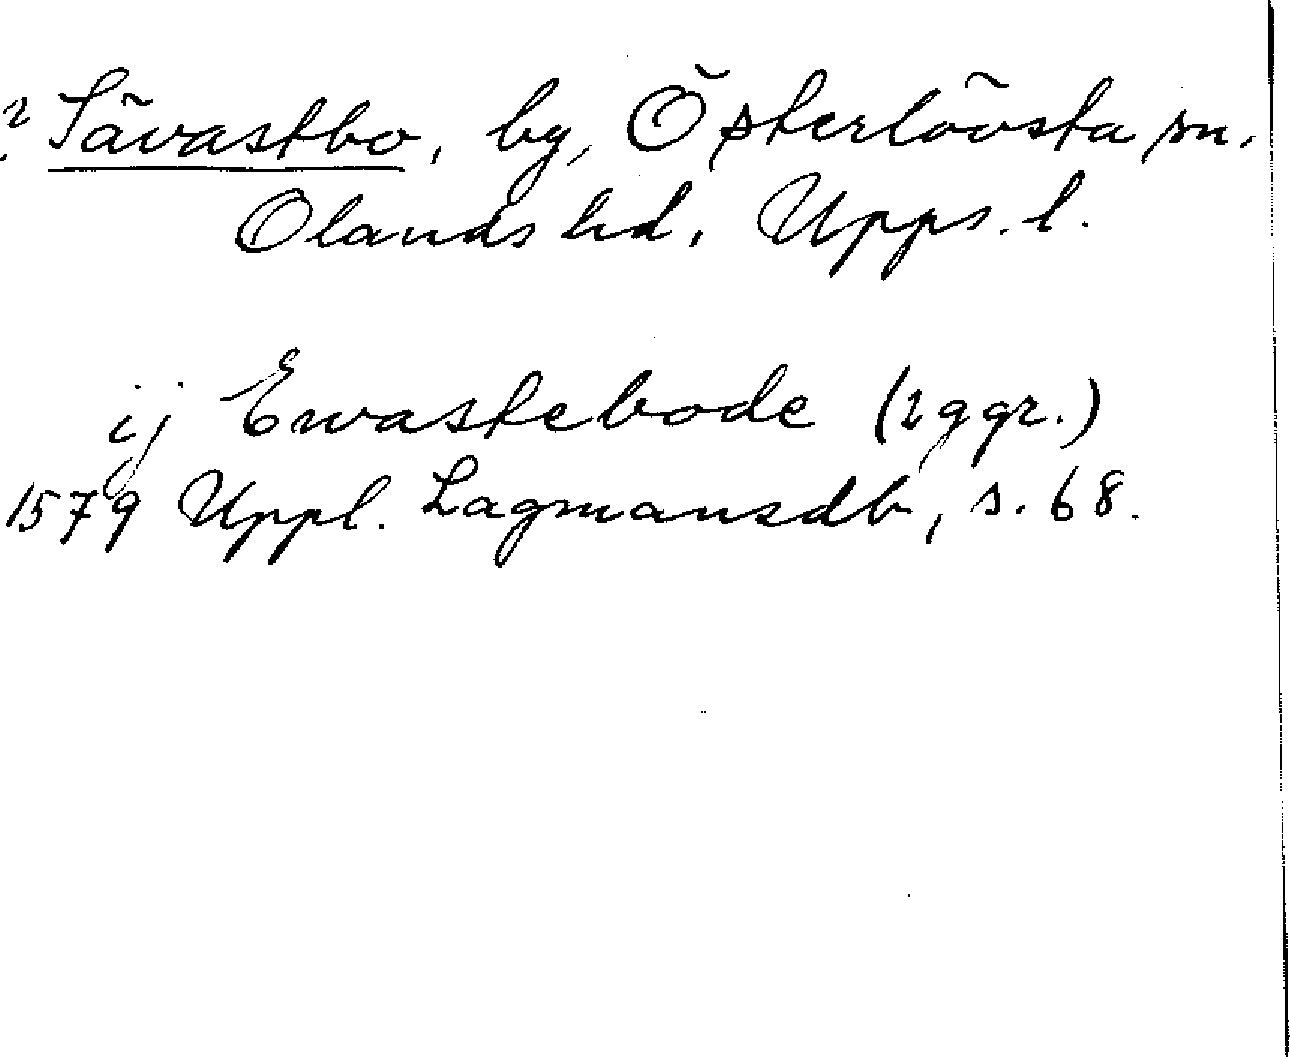 ? Sävastbo, by, Österlövsta sn.
Olands hd. Upps. l.
ij Ewastebode (2 ggr.)
1579 Uppl. Lagmansdb, s. 68.